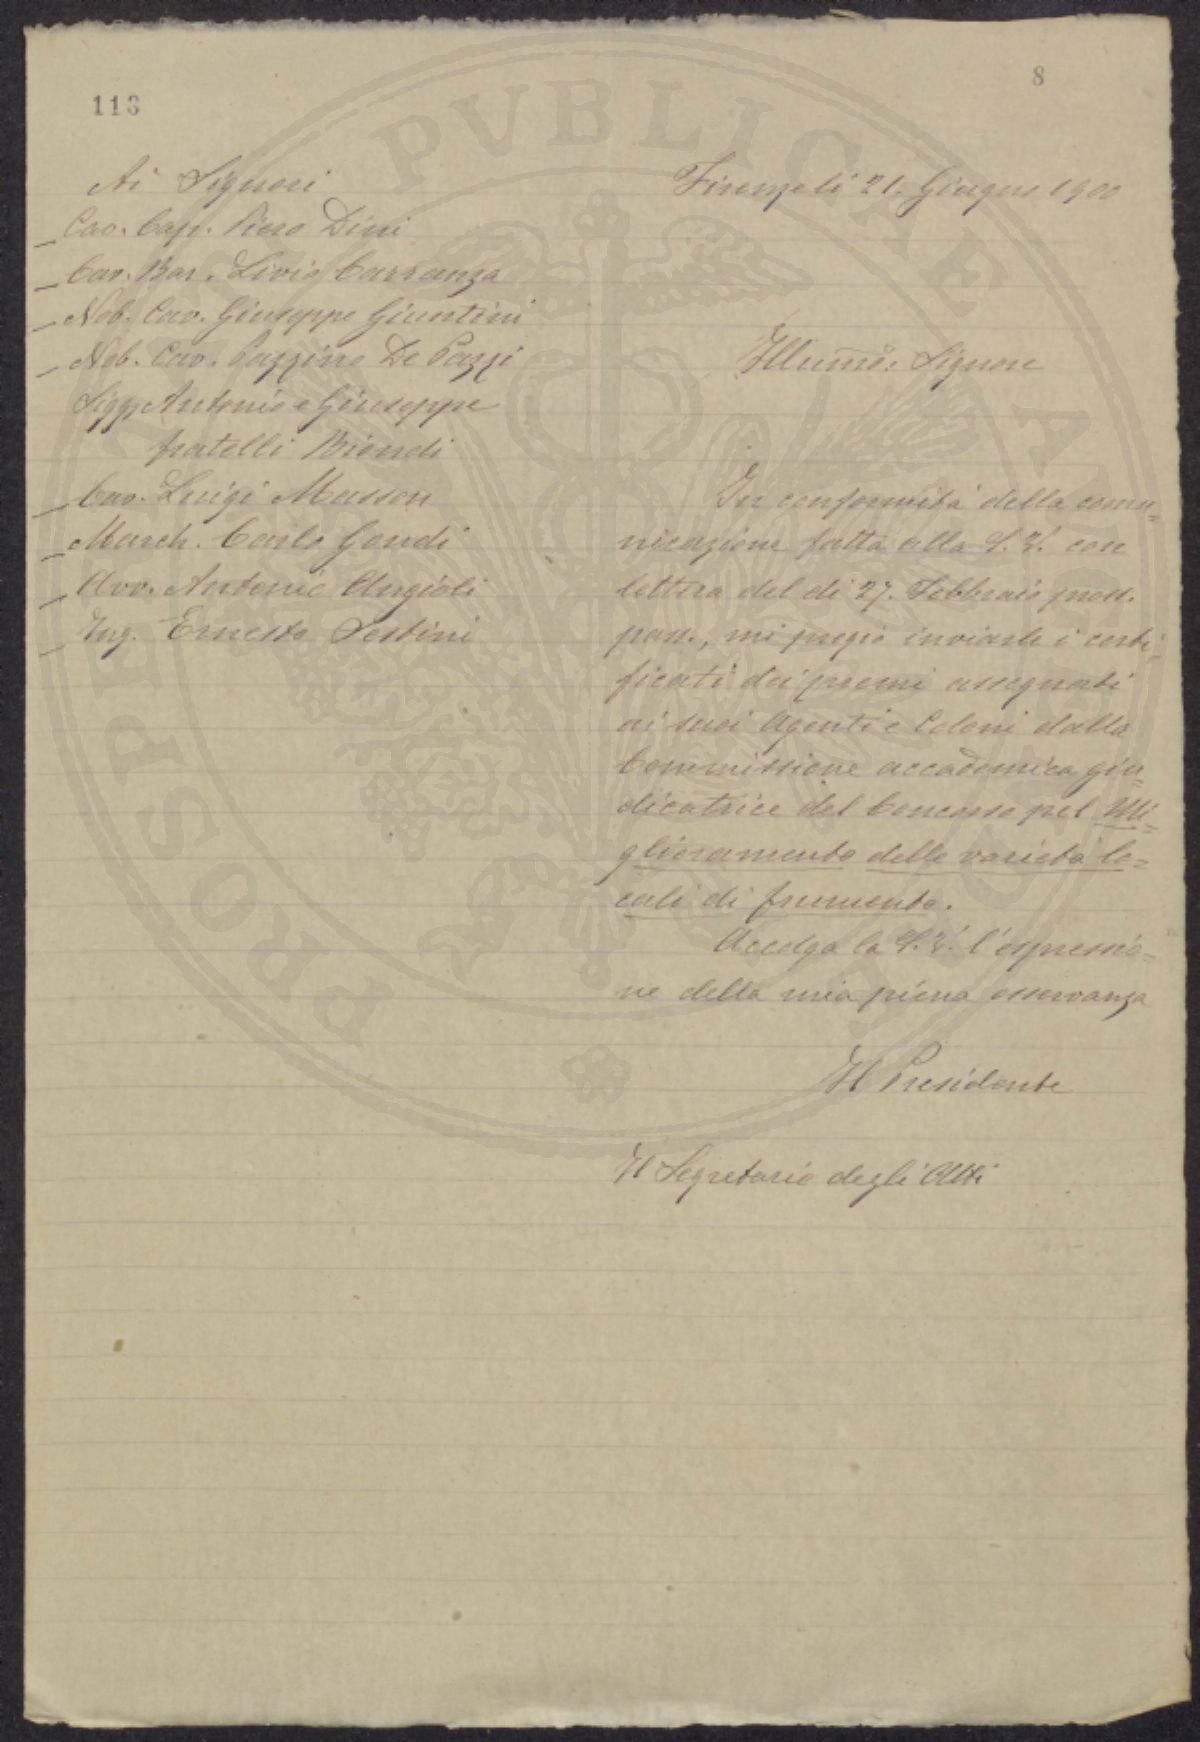 113
8
Ai Signori
Cav. Cap. Piero Dini
Cav. Bar. Livio Carranza
Nob. Cav. Giuseppe Giuntini
Nob. Cav. Pazzino De Pazzi
Sigg. Antonio e Giuseppe
fratelli Biondi
Cav. Luigi Masson
March. Carlo Gondi
Avv. Antonio Angioli
Ing. Ernesto Sestini
Firenze li 21. Giugno 1900
Illumo. Signore
In conformità della comu=
nicazione fatta alla S. V. con
lettera del dì 27. Febbraio pross.
pass., mi pregio inviarle i certi=
ficati dei premi assegnati
ai suoi Agenti e Coloni dalla
Commissione accademica giu=
dicatrice del Concorso pel Mi=
glioramento delle varietà lo=
cali di frumento.
Accolga la S. V. l'espressio=
ne della mia piena osservanza
Il Presidente
Il Segretario degli Atti
PROSPERITATI PVBLICAE AVGENDAE